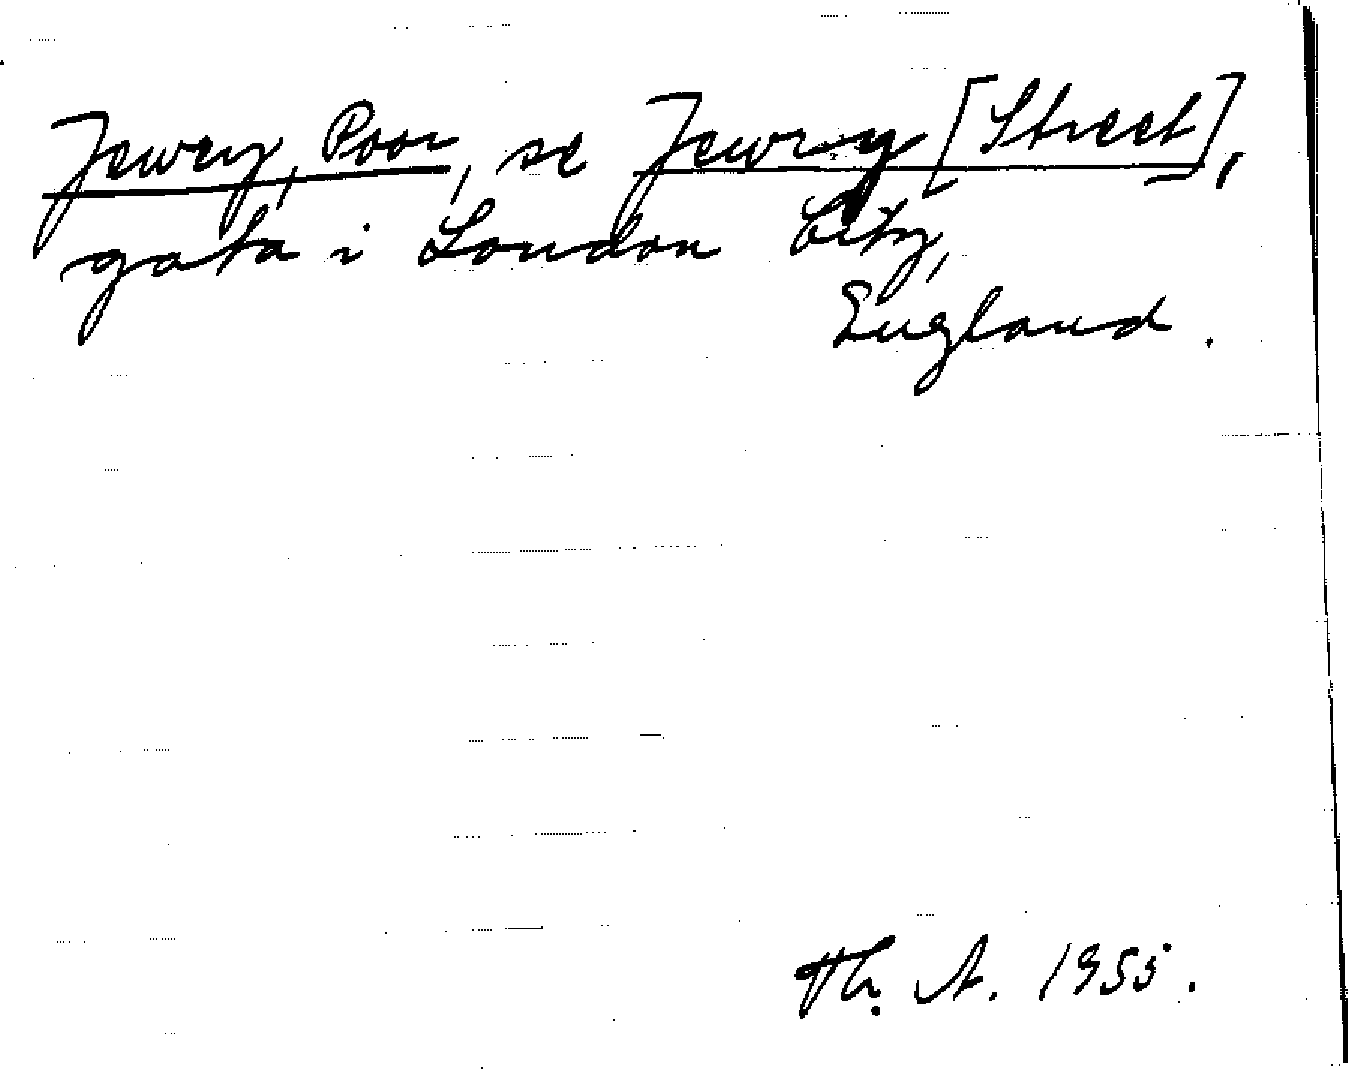 Jewry, Poor, se Jewry [Street],
gata i London City,
England.
Th. A. 1955.